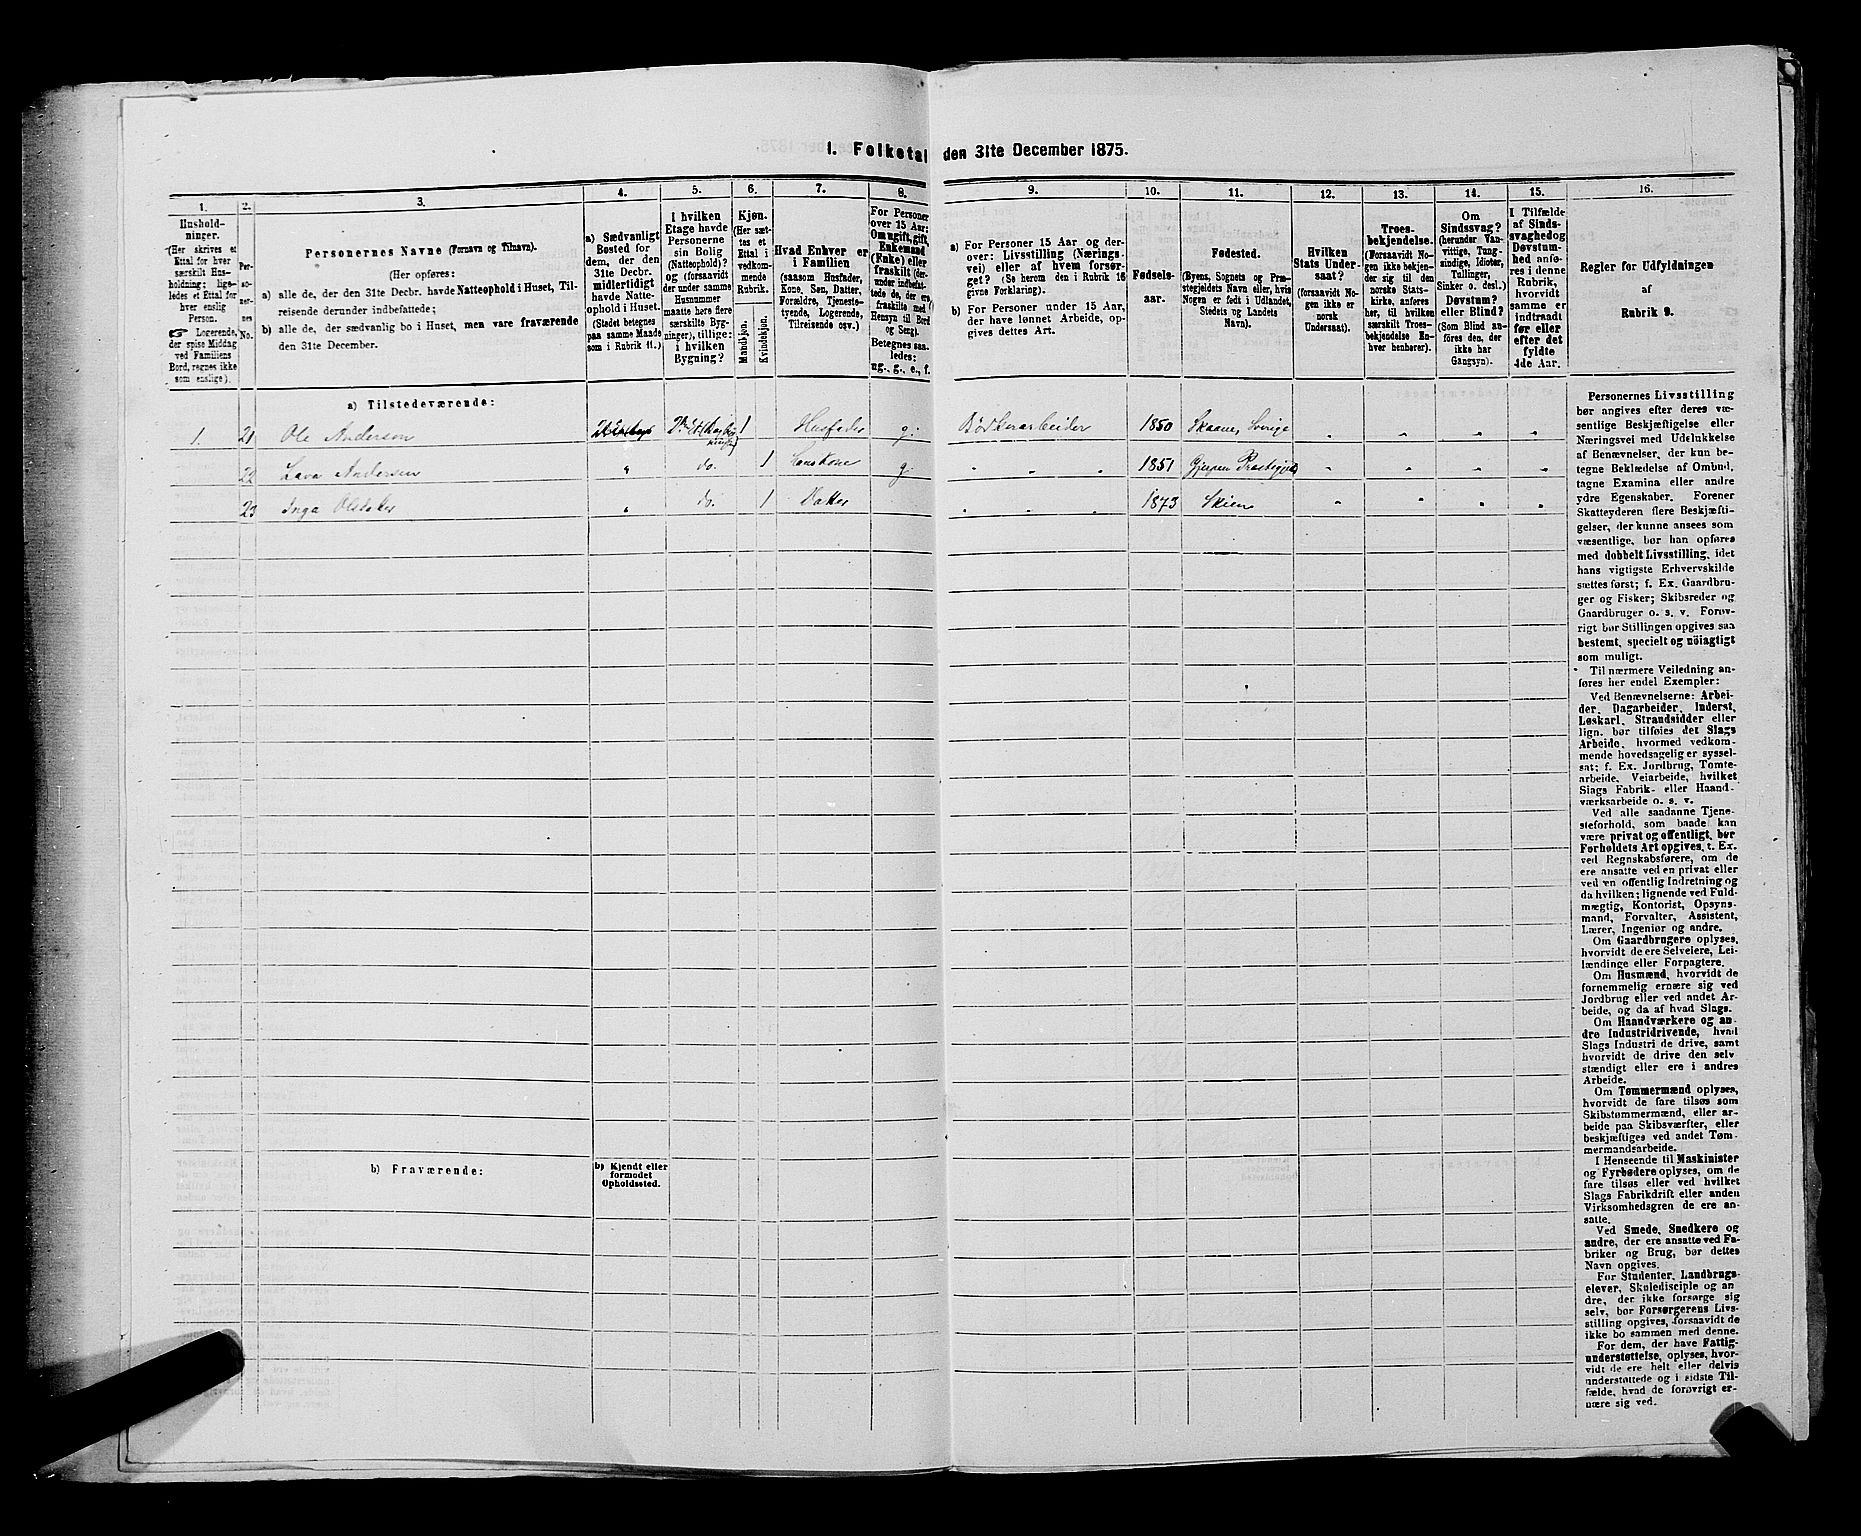 I. Folketal den 31te December 1875.
1.
Hushold-
ninger.
(Her skrives et
Ettal for hver
særskilt Hus-
holdning; lige-
ledes et Ettal for
hver enslig
Person.
☞ Logerende,
der spise Middag
ved Familiens
Bord, regnes ikke
som enslige).
2.
Per-
so-
ner-
nes
No.
3.
Personernes Navne (Fornavn og Tilnavn).
(Her opføres:
a) alle de, der den 31te Decbr. havde Natteophold i Huset, Til-
reisende derunder indbefattede;
b) alle de, der sædvanlig bo i Huset, men vare fraværende
den 31te December.
4.
a) Sædvanligt
Bosted for
dem, der den
31te Decbr.
midlertidigt
havde Natte-
ophold i Huset.
(Stedet betegnes
paa samme Maade
som i Rubrik 11.)
5.
I hvilken
Etage havde
Personerne
sin Bolig
(Natteophold)?
og (forsaavidt
der under samme
Husnummer
maatte høre flere
særskilte Byg-
ninger), tillige:
i hvilken
Bygning?
6.
Kjøn.
(Her sæt-
tes et
Ettal i
vedkom-
mende
Rubrik.
Mandkjøn.
Kvindekjøn.
7.
Hvad Enhver er
i Familien
(saasom Husfader,
Kone, Søn, Datter,
Forældre, Tjeneste-
tyende, Logerende,
Tilreisende osv.)
8.
For Personer
over 15 Aar:
Om ugift, gift,
Enkemand
(Enke) eller
fraskilt (der-
under indbefat-
tede de, der ere
fraskilte med
Hensyn til Bord
og Seng).
Betegnes saa-
ledes:
ug., g., e., f.
9.
a) For Personer 15 Aar og der-
over: Livsstilling (Nærings-
vei) eller af hvem forsør-
get? (Se herom den i Rubrik 16
givne Forklaring).
b) For Personer under 15 Aar,
der have lønnet Arbeide, op-
gives dettes Art.
10.
Fødsels-
aar.
11.
Fødested.
(Byens, Sognets og Præ-
stegjeldets Navn eller, hvis
Nogen er født i Udlandet,
Stedets og Landets
Navn).
12.
Hvilken
Stats Under-
saat?
(forsaavidt No-
gen ikke er
norsk
Undersaat).
13.
Troes-
bekjendelse.
(Forsaavidt No-
gen ikke bekjen-
der sig til den
norske Stats-
kirke, anføres
her, til hvilken
særskilt Troes-
bekjendelse En-
hver henhører).
14.
Om
Sindssvag?
(herunder Van-
vittige, Tung-
sindige, Idioter,
Tullinger,
Sinker o. desl.)
Døvstum?
eller Blind?
(Som Blind an-
føres den, der
ikke har
Gangsyn).
15.
I Tilfælde
af Sinds-
svaghed og
Døvstum-
hed anfø-
res i denne
Rubrik,
hvorvidt
samme er
indtraadt
før eller
efter det
fyldte
4de Aar.
16.
Regler for Udfyldningen
af
Rubrik 9.
a) Tilstedeværende:
1. 21 Ole Andersen 1 Husfader g. Bødkerarbeider 1850 Skaane, Sverige " " " "
22 Lava Andersen " do. 1 Huskone g. " " " 1851 Gjerpen " " " "
23 Inga Olsdater " do. 1 Datter " " " 1873 Skien " " " "
b) Fraværende:
b) Kjendt eller
formodet
Opholdssted.
Personernes Livsstilling
bør angives efter deres væ-
sentlige Beskjæftigelse eller
Næringsvei med Udelukkelse
af Benævnelser, der kun be-
tegne Beklædelse af Ombud,
tagne Examina eller andre
ydre Egenskaber. Forener
Skatteyderen flere Beskjæfti-
gelser, der kunne ansees som
væsentlige, bør han opføres
med dobbelt Livsstilling, idet
hans vigtigste Erhvervskilde
sættes først; f. Ex. Gaardbru-
ger og Fisker; Skibsreder og
Gaardbruger o. s. v. Forøv-
rigt bør Stillingen opgives saa
bestemt, specielt og nöiagtigt
som muligt.
Til nærmere Veiledning an-
føres her endel Exempler:
Ved Benævnelserne: Arbei-
der, Dagarbeider, Inderst,
Løskarl, Strandsidder eller
lign. bør tilføies det Slags
Arbeide, hvormed vedkom-
mende hovedsagelig er syssel-
sat; f. Ex. Jordbrug, Tomte-
arbeide, Veiarbeide, hvilket
Slags Fabrik- eller Haand-
værksarbeide o. s. v.
Ved alle saadanne Tjene-
steforhold, som baade kan
være privat og offentligt, bør
Forholdets Art opgives, t. Ex.
ved Regnskabsførere, om de
ere ansatte ved en privat eller
ved en offentlig Indretning og
da hvilken; lignende ved Fuld-
mægtig, Kontorist, Opsyns-
mand, Forvalter, Assistent,
Lærer, Ingeniør og andre.
Om Gaardbrugere oplyses,
hvorvidt de ere Selveiere, Lei-
lændinge eller Forpagtere.
Om Husmænd, hvorvidt de
fornemmelig ernære sig ved
Jordbrug eller ved andet Ar-
beide, og da af hvad Slags.
Om Haandværkere og an-
dre Industridrivende, hvad
Slags Industri de drive, samt
hvorvidt de drive den selv-
stændigt eller ere i andres
Arbeide.
Om Tømmermænd oplyses,
hvorvidt de fare tilsøs som
Skibstømmermænd, eller ar-
beide paa Skibsværfter, eller
beskjæftiges ved andet Tøm-
mermandsarbeide.
I Henseende til Maskinister
og Fyrbødere oplyses, om de
fare tilsøs eller ved hvilket
Slags Fabrikdrift eller anden
Virksomhedsgren de ere an-
satte.
Ved Smede, Snedkere og
andre, der ere ansatte ved Fa-
briker og Brug, bør dettes
Navn opgives.
For Studenter, Landbrugs-
elever, Skoledisciple og an-
dre, der ikke forsørge sig
selv, bør Forsørgerens Livs-
stilling opgives, forsaavidt de
ikke bo sammen med denne.
For dem, der have Fattig-
understøttelse, oplyses, hvor-
vidt de ere helt eller delvis
understøttede og i sidste Til-
fælde, hvad de forøvrigt er-
nære sig ved.